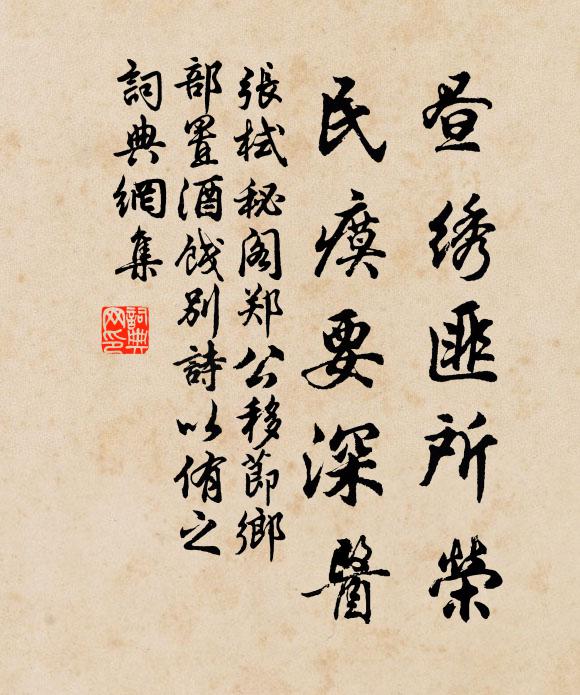 昼绣匪所榮
民瘼要深醫
張栻秘阁郑公移節鄉
部置酒餞別詩以侑之
詞典網集
詞典网印